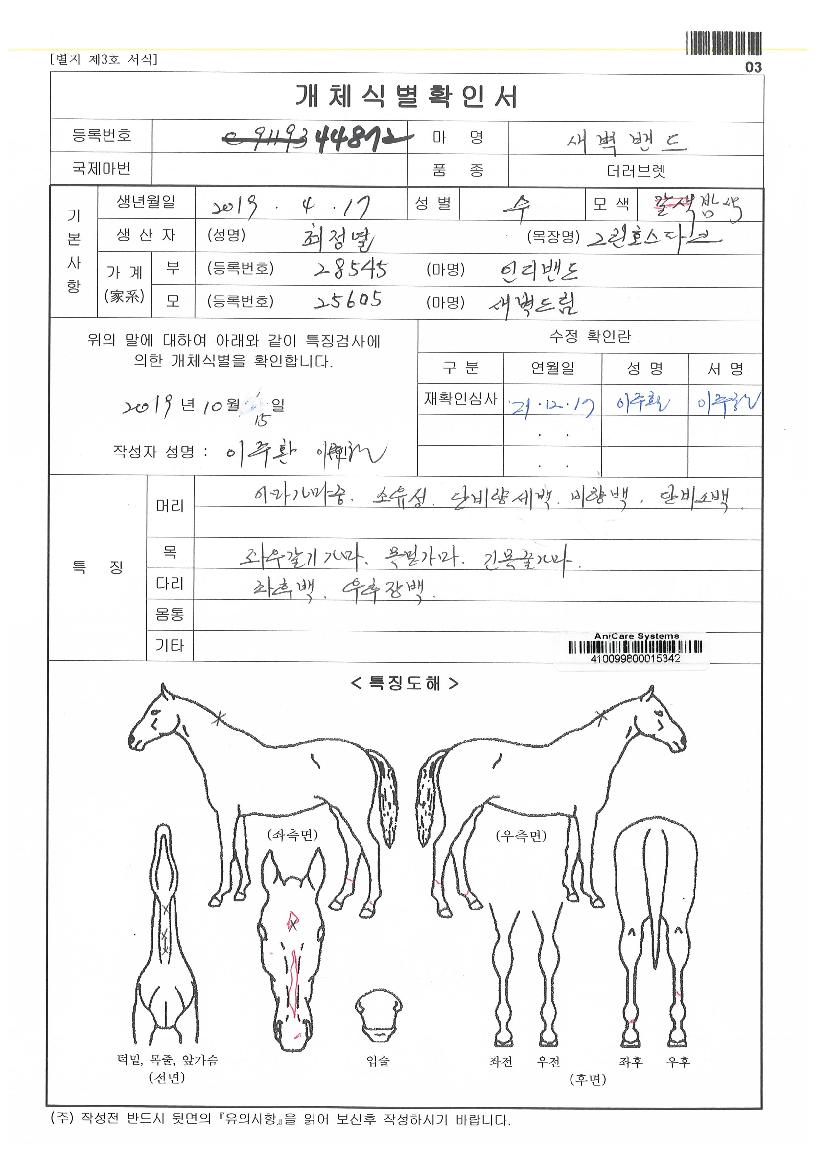 [별지 제3호 서식]
03
개체식별확인서
등록번호 0911934 44872 마 명 새벽밴드
국제마번 품 종 더러브렛
기본사항
생년월일 2019 . 4 . 17 성 별 수 모 색 갈색 밤색
생 산 자 (성명) 최정열 (목장명) 그린호스타운
가 계 (家系) 부 (등록번호) 28545 (마명) 인디밴드
모 (등록번호) 25605 (마명) 새벽드림
위의 말에 대하여 아래와 같이 특징검사에
의한 개체식별을 확인합니다.
2019 년 10 월 15 일
작성자 성명 : 이주환
수정 확인란
구 분 연월일 성 명 서 명
재확인심사 '21.12.17
. .
. .
특 징
머리 이마가마중. 소유성. 단비량세백. 비량백. 단비소백.
목 좌우갈기가마. 목밑가마. 긴목줄가마.
다리 좌후백. 우후장백.
몸통
기타
AniCare Systems
410099800015342
< 특징도해 >
(좌측면) (우측면)
턱밑, 목줄, 앞가슴
(선면)
입술
좌전 우전 좌후 우후
(후면)
(주) 작성전 반드시 뒷면의 『유의사항』을 읽어 보신후 작성하시기 바랍니다.